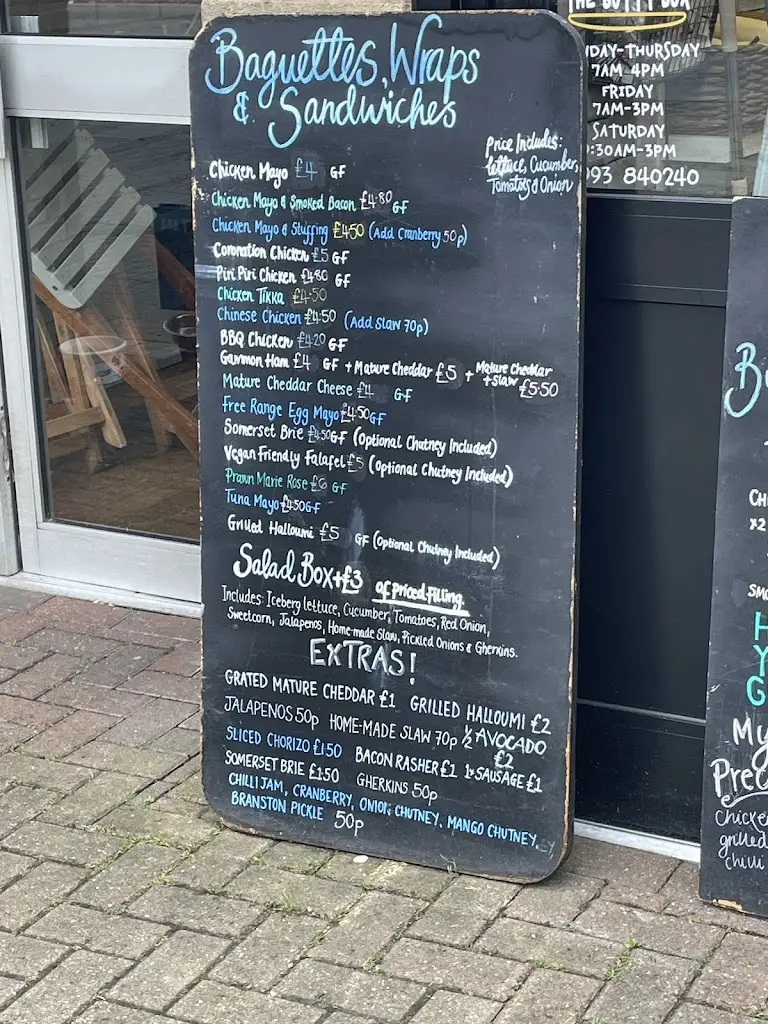 Baguettes, Wraps
& Sandwiches
Price Includes:
lettuce, Cucumber,
Tomatoes & Onion
Chicken Mayo £4 GF
Chicken Mayo & Smoked Bacon £4.80 GF
Chicken Mayo & Stuffing £4.50 (Add Cranberry 50p)
Coronation Chicken £5 GF
Piri Piri Chicken £4.80 GF
Chicken Tikka £4.50
Chinese Chicken £4.50 (Add Slaw 70p)
BBQ Chicken £4.20 GF
Gammon Ham £4 GF + Mature Cheddar £5 + Mature Cheddar + Slaw £5.50
Mature Cheddar Cheese £4 GF
Free Range Egg Mayo £4.50 GF
Somerset Brie £4.50 GF (Optional Chutney Included)
Vegan Friendly Falafel £5 (Optional Chutney Included)
Prawn Marie Rose GF
Tuna Mayo £4.50 GF
Grilled Halloumi £5 GF (Optional Chutney Included)
Salad Box + £3 of priced filling
Includes: Iceberg lettuce, Cucumber, Tomatoes, Red Onion,
Sweetcorn, Jalapenos, Home made Slaw, Pickled Onions & Gherkins.
EXTRAS!
GRATED MATURE CHEDDAR £1 GRILLED HALLOUMI £2
JALAPENOS 50p HOME-MADE SLAW 70p ½ AVOCADO £2
SLICED CHORIZO £1.50 BACON RASHER £1 1x SAUSAGE £1
SOMERSET BRIE £1.50 GHERKINS 50p
CHILLI JAM, CRANBERRY, ONION CHUTNEY, MANGO CHUTNEY,
BRANSTON PICKLE 50p
THE BUTTY BOX
DAY-THURSDAY
7AM-4PM
FRIDAY
7AM-3PM
SATURDAY
:30AM-3PM
093 840240
B
CH
x2
SMO
H
Y
G
My
Pre
Chicke
grilled
Chilli